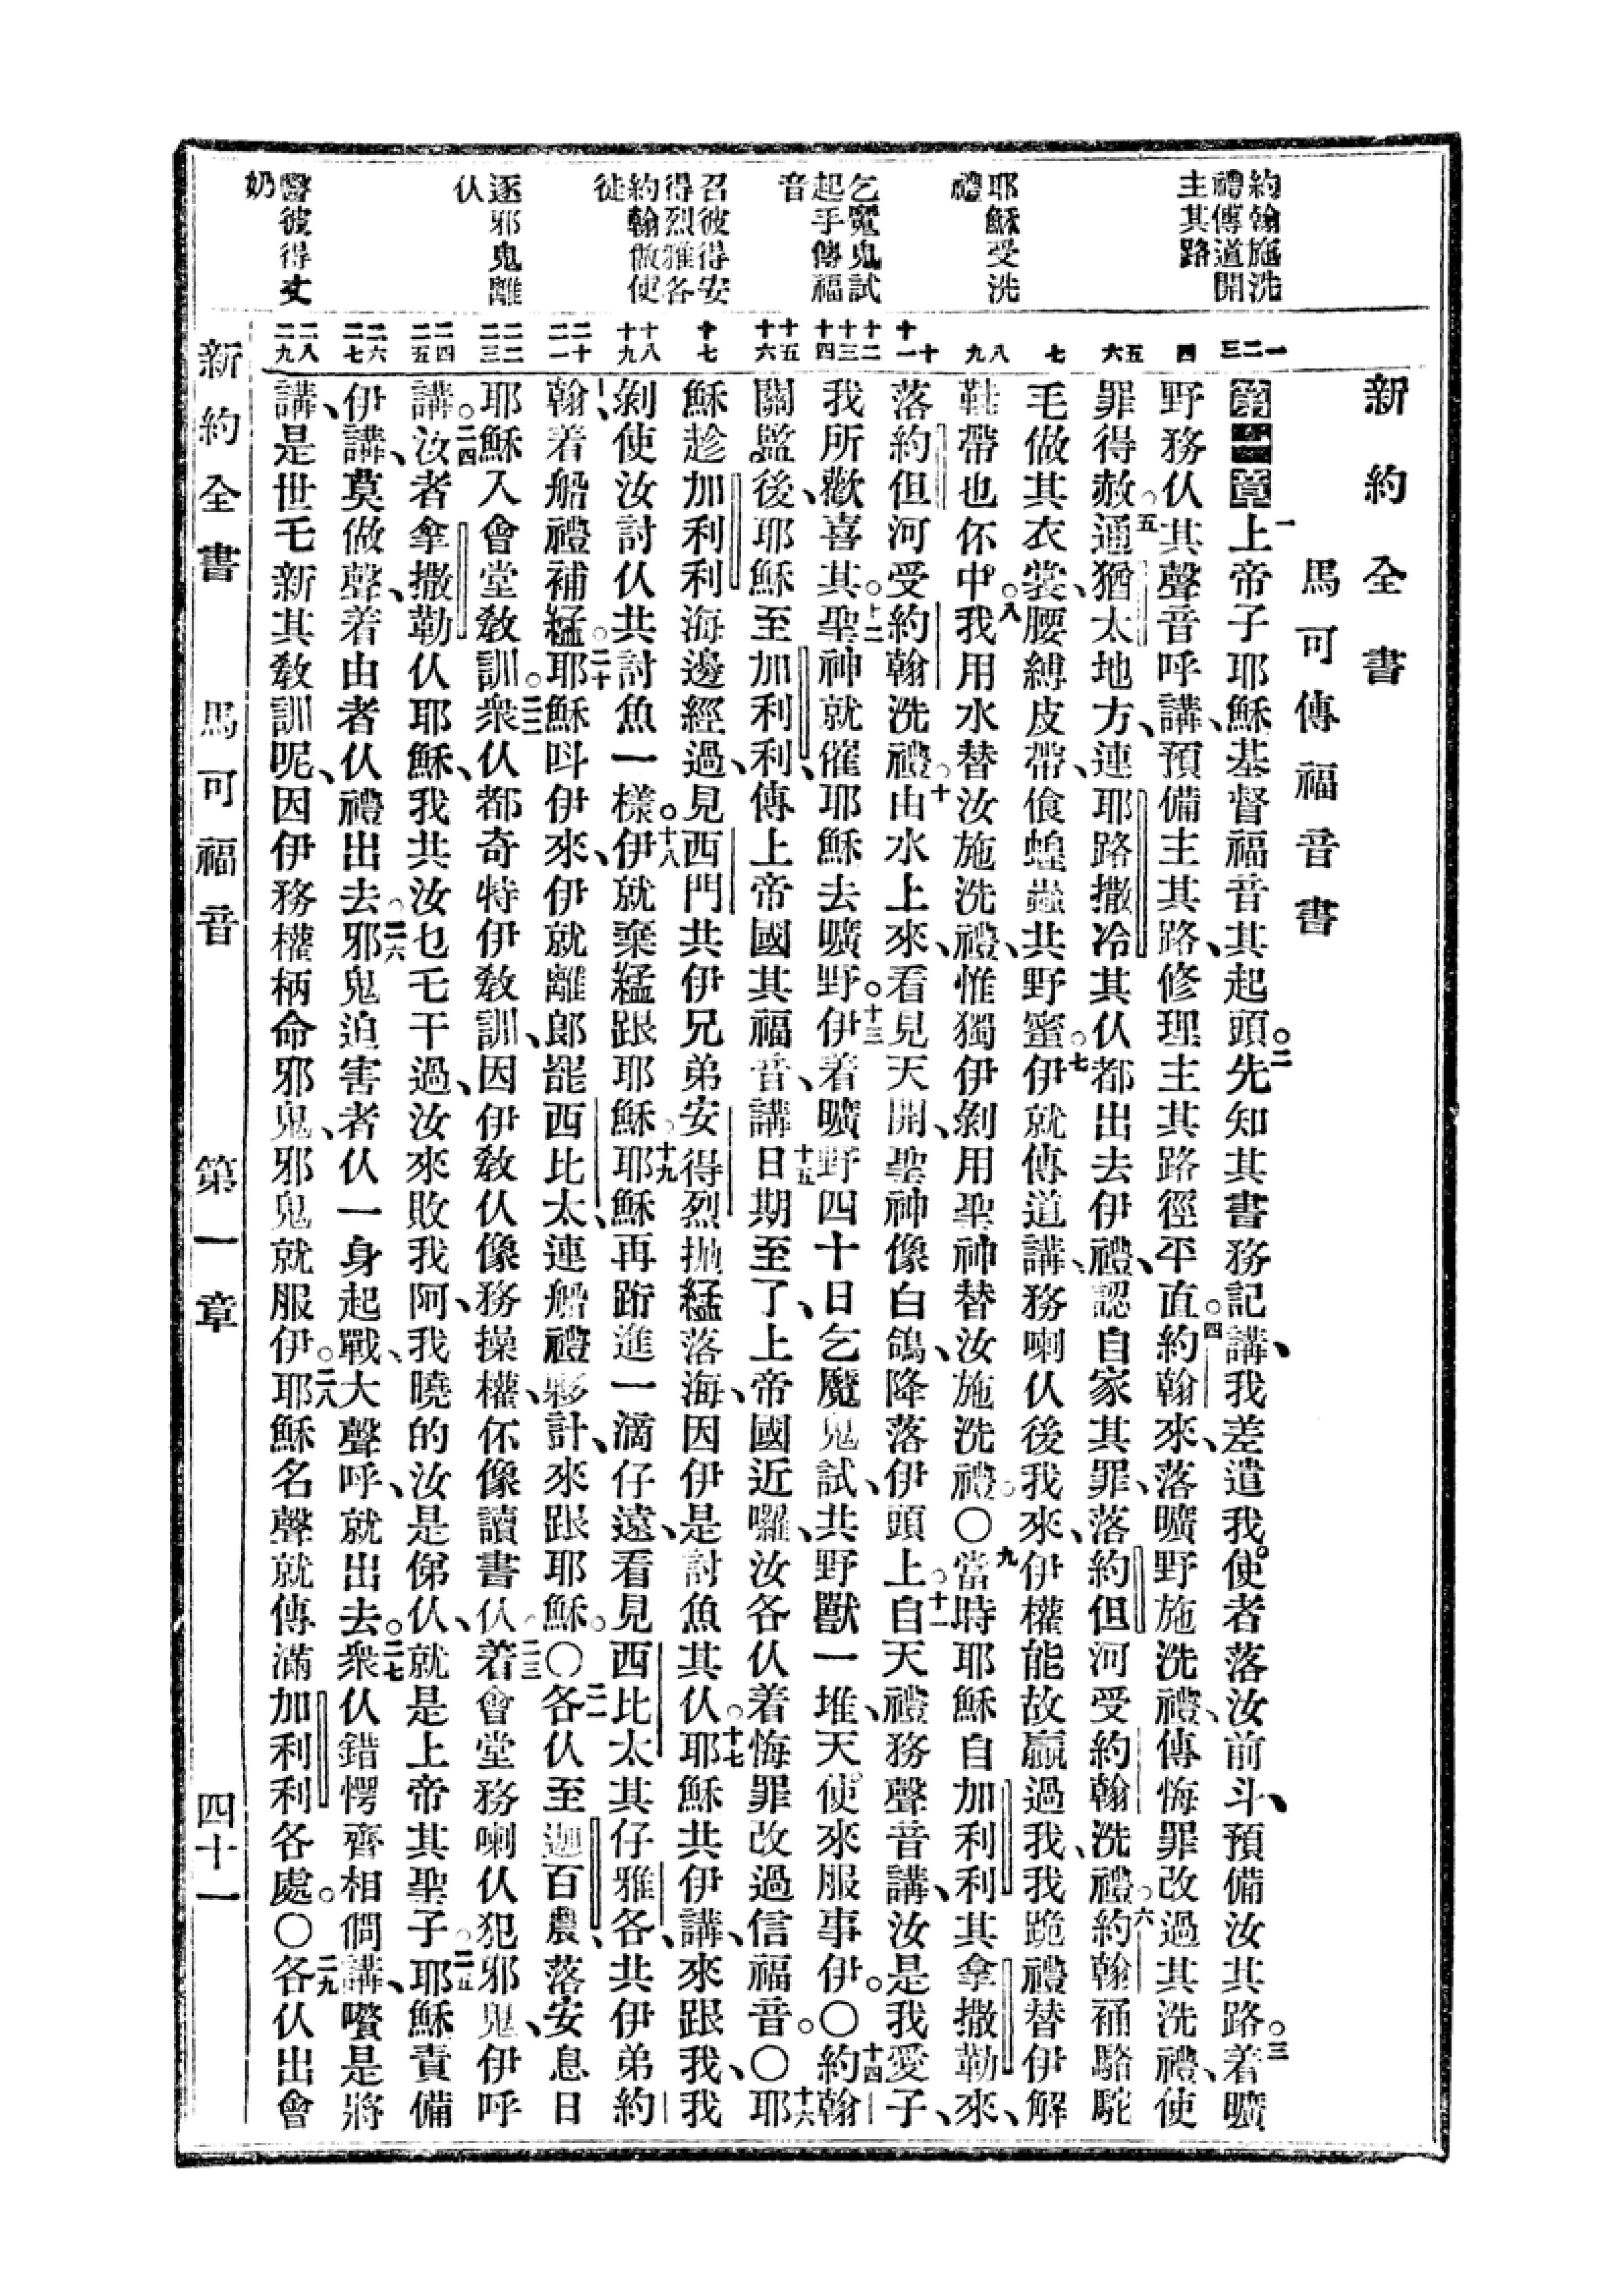 新約全書
馬可傳福音書
約翰施洗
禮傳道開
主其路
耶穌受洗
禮
乞魔鬼試
起手傳福
音
召彼得安
得烈雅各
約翰做使
徒
逐邪鬼離
仈
醫彼得丈
奶
一 二 三
四
五 六
七
八 九
十 十一
十二 十三 十四
十五 十六
十七
十八 十九
二十 二一
二二 二三
二四 二五
二六 二七
二八 二九
第一章 一上帝子耶穌基督福音其起頭。二先知其書務記講、我差遣我使者落汝前斗、預備汝其路。三着曠
野務仈其聲音呼講、預備主其路、修理主其路徑平直。四約翰來、落曠野施洗禮、傳悔罪改過其洗禮、使
罪得赦。五通猶太地方、連耶路撒冷其仈都出去伊禮、認自家其罪、落約但河受約翰洗禮。六約翰𧙕駱駝
毛做其衣裳、腰縛皮帶、飡蝗蟲共野蜜。七伊就傳道講、務喇仈後我來、伊權能故贏過我、我跪禮替伊解
鞋帶也伓中。八我用水替汝施洗禮、惟獨伊剝用聖神替汝施洗禮。〇九當時耶穌自加利利其拿撒勒來、
落約但河受約翰洗禮。十由水上來、看見天開、聖神像白鴿、降落伊頭上。十一自天禮務聲音講、汝是我愛子、
我所歡喜其。十二聖神就催耶穌去曠野。十三伊着曠野四十日乞魔鬼試、共野獸一堆、天使來服事伊。〇十四約翰
關監後、耶穌至加利利、傳上帝國其福音、十五講日期至了、上帝國近囉、汝各仈着悔罪改過信福音。〇十六耶
穌趁加利利海邊經過、見西門共伊兄弟安得烈拋艋落海、因伊是討魚其仈。十七耶穌共伊講、來跟我、我
剝使汝討仈共討魚一樣。十八伊就棄艋跟耶穌。十九耶穌再跨進一滴仔遠、看見西比太其仔雅各、共伊弟約
翰、着船禮補艋。二十耶穌呌伊來、伊就離郎罷西比太、連船禮夥計、來跟耶穌。〇二一各仈至迦百農、落安息日
耶穌入會堂敎訓。二二衆仈都奇特伊敎訓、因伊敎仈像務操權、伓像讀書仈。二三着會堂務喇仈犯邪鬼、伊呼
講。二四汝者拿撒勒仈耶穌、我共汝乜乇干過、汝來敗我阿、我曉的汝是俤仈、就是上帝其聖子。二五耶穌責備
伊講、莫做聲、着由者仈禮出去。二六邪鬼迫害者仈一身起戰、大聲呼、就出去。二七衆仈錯愕、齊相倜講、㘔是將
講、是世乇新其敎訓呢、因伊務權柄命邪鬼、邪鬼就服伊。二八耶穌名聲就傳滿加利利各處。〇二九各仈出會
新約全書 馬可福音 第一章 四十一